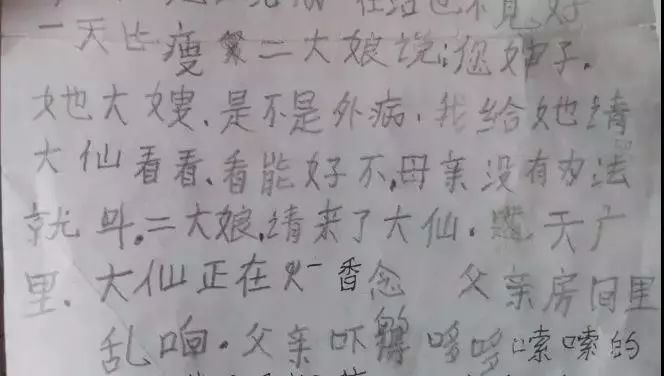 在给也不见好
一天比瘦 二大娘说:您婶子.
她大嫂.是不是外病.我给她请
大仙看看.看能好不,母亲没有办法
就叫.二大娘.请来了大仙. 天广
里.大仙正在 一香念 父亲房间里
乱响.父亲吓的 哆哆嗦嗦的